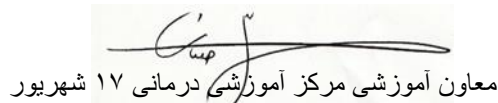 معاون آموزشی مرکز آموزشی درمانی ۱۷ شهریور